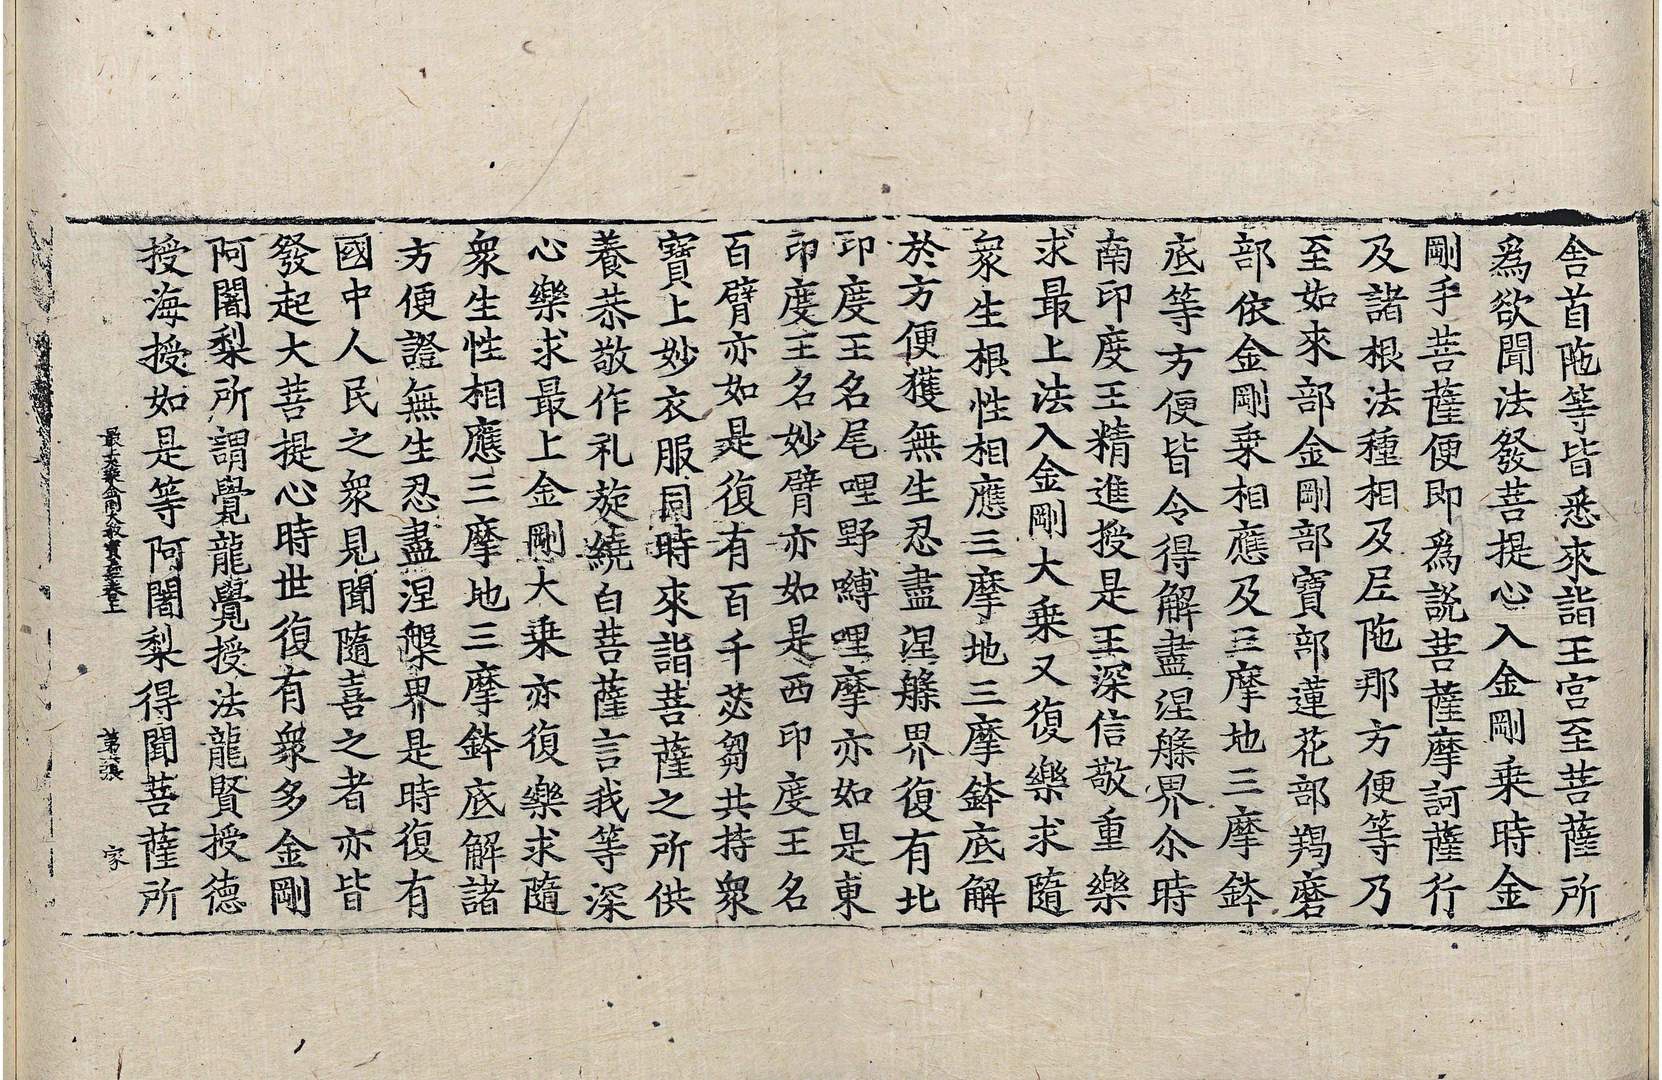 舎首陁等皆悉來詣王宫至菩薩所
爲欲聞法發菩提心入金剛乗時金
剛手菩薩便即爲説菩薩摩訶薩行
及諸根法種相及尼陁那方便等乃
至如來部金剛部寶部蓮花部羯磨
部依金剛乗相應及三摩地三摩鉢
底等方便皆令得解盡涅槃界尒時
南印度王精進授是王深信敬重樂
求最上法入金剛大乗又復樂求隨
衆生根性相應三摩地三摩鉢底解
於方便獲無生忍盡涅槃界復有北
印度王名尾哩野嚩哩摩亦如是東
印度王名妙臂亦如是西印度王名
百臂亦如是復有百千苾芻共持衆
寶上妙衣服同時來詣菩薩之所供
養恭敬作礼旋繞白菩薩言我等深
心樂求最上金剛大乗亦復樂求隨
衆生性相應三摩地三摩鉢底解諸
方便證無生忍盡涅槃界是時復有
國中人民之衆見聞隨喜之者亦皆
發起大菩提心時世復有衆多金剛
阿闍梨所謂覺龍覺授法龍賢授德
授海授如是等阿闍梨得聞菩薩所
最上大乘金剛大教寶王經卷上 第 張 家